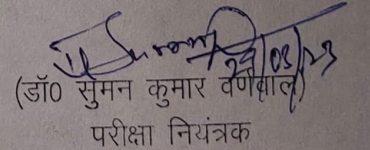 29/03/23
(डॉ0 सुमन कुमार वर्णवाल)
परीक्षा नियंत्रक